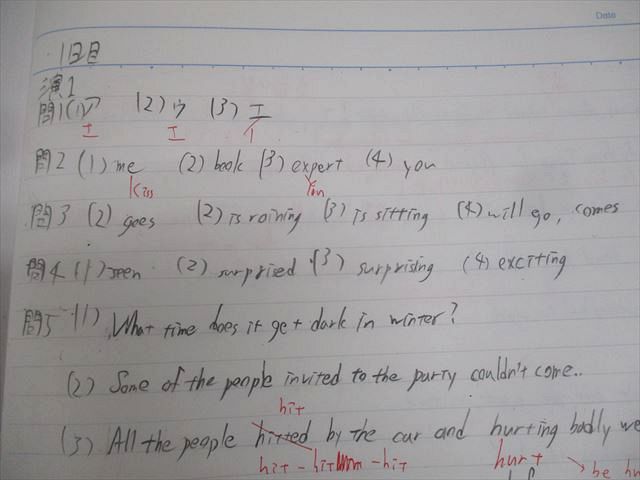 Date
1日目
演1
問1(1)ア (2)ウ (3)エ
エ エ イ
問2 (1) me (2) book (3) expert (4) you
kiss You
問3 (2) goes (2) is raining (3) is sitting (4) will go, comes
問4 (1) seen (2) surprised (3) surprising (4) exciting
問5 (1) What time does it get dark in winter?
(2) Some of the people invited to the party couldn't come..
hit
(3) All the people hitted by the car and hurting badly we
hit - hit - hit hurt → be hu